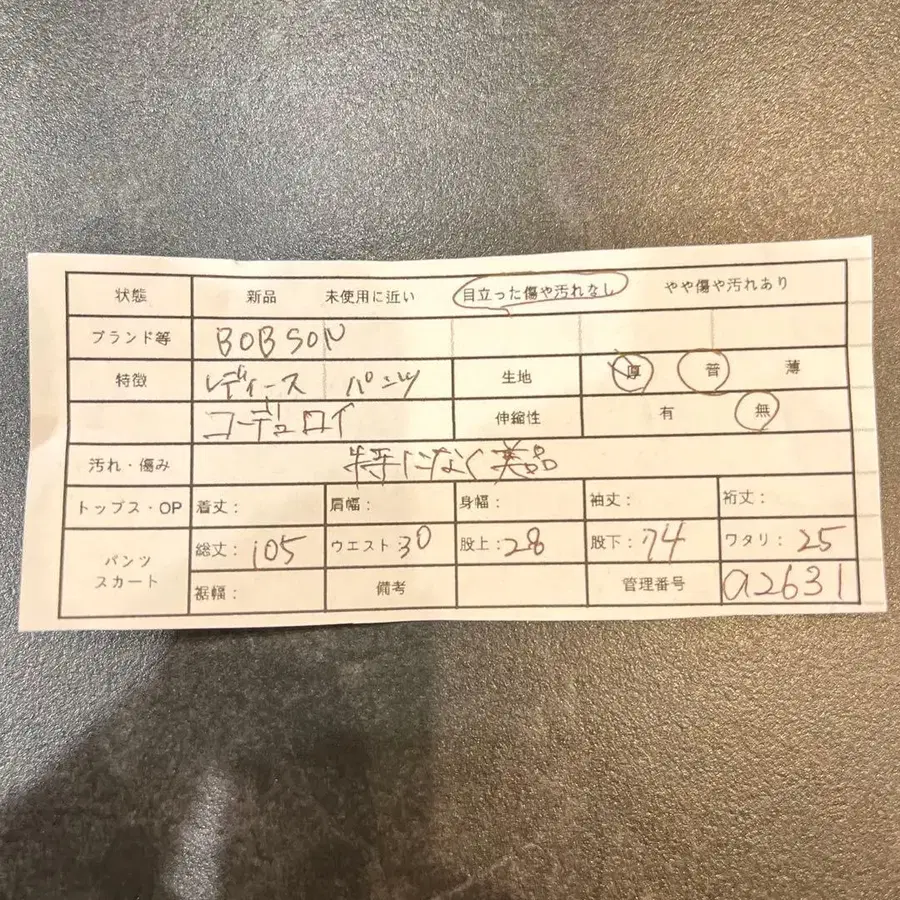 状態 新品 未使用に近い 目立った傷や汚れなし やや傷や汚れあり
ブランド等 BOBSON
特徴 レディース パンツ 生地 厚 普 薄
コーデュロイ 伸縮性 有 無
汚れ・傷み 特になく美品
トップス・OP 着丈: 肩幅: 身幅: 袖丈: 裄丈:
パンツ スカート 総丈:105 ウエスト:30 股上:28 股下:74 ワタリ:25
裾幅: 備考 管理番号 a2631